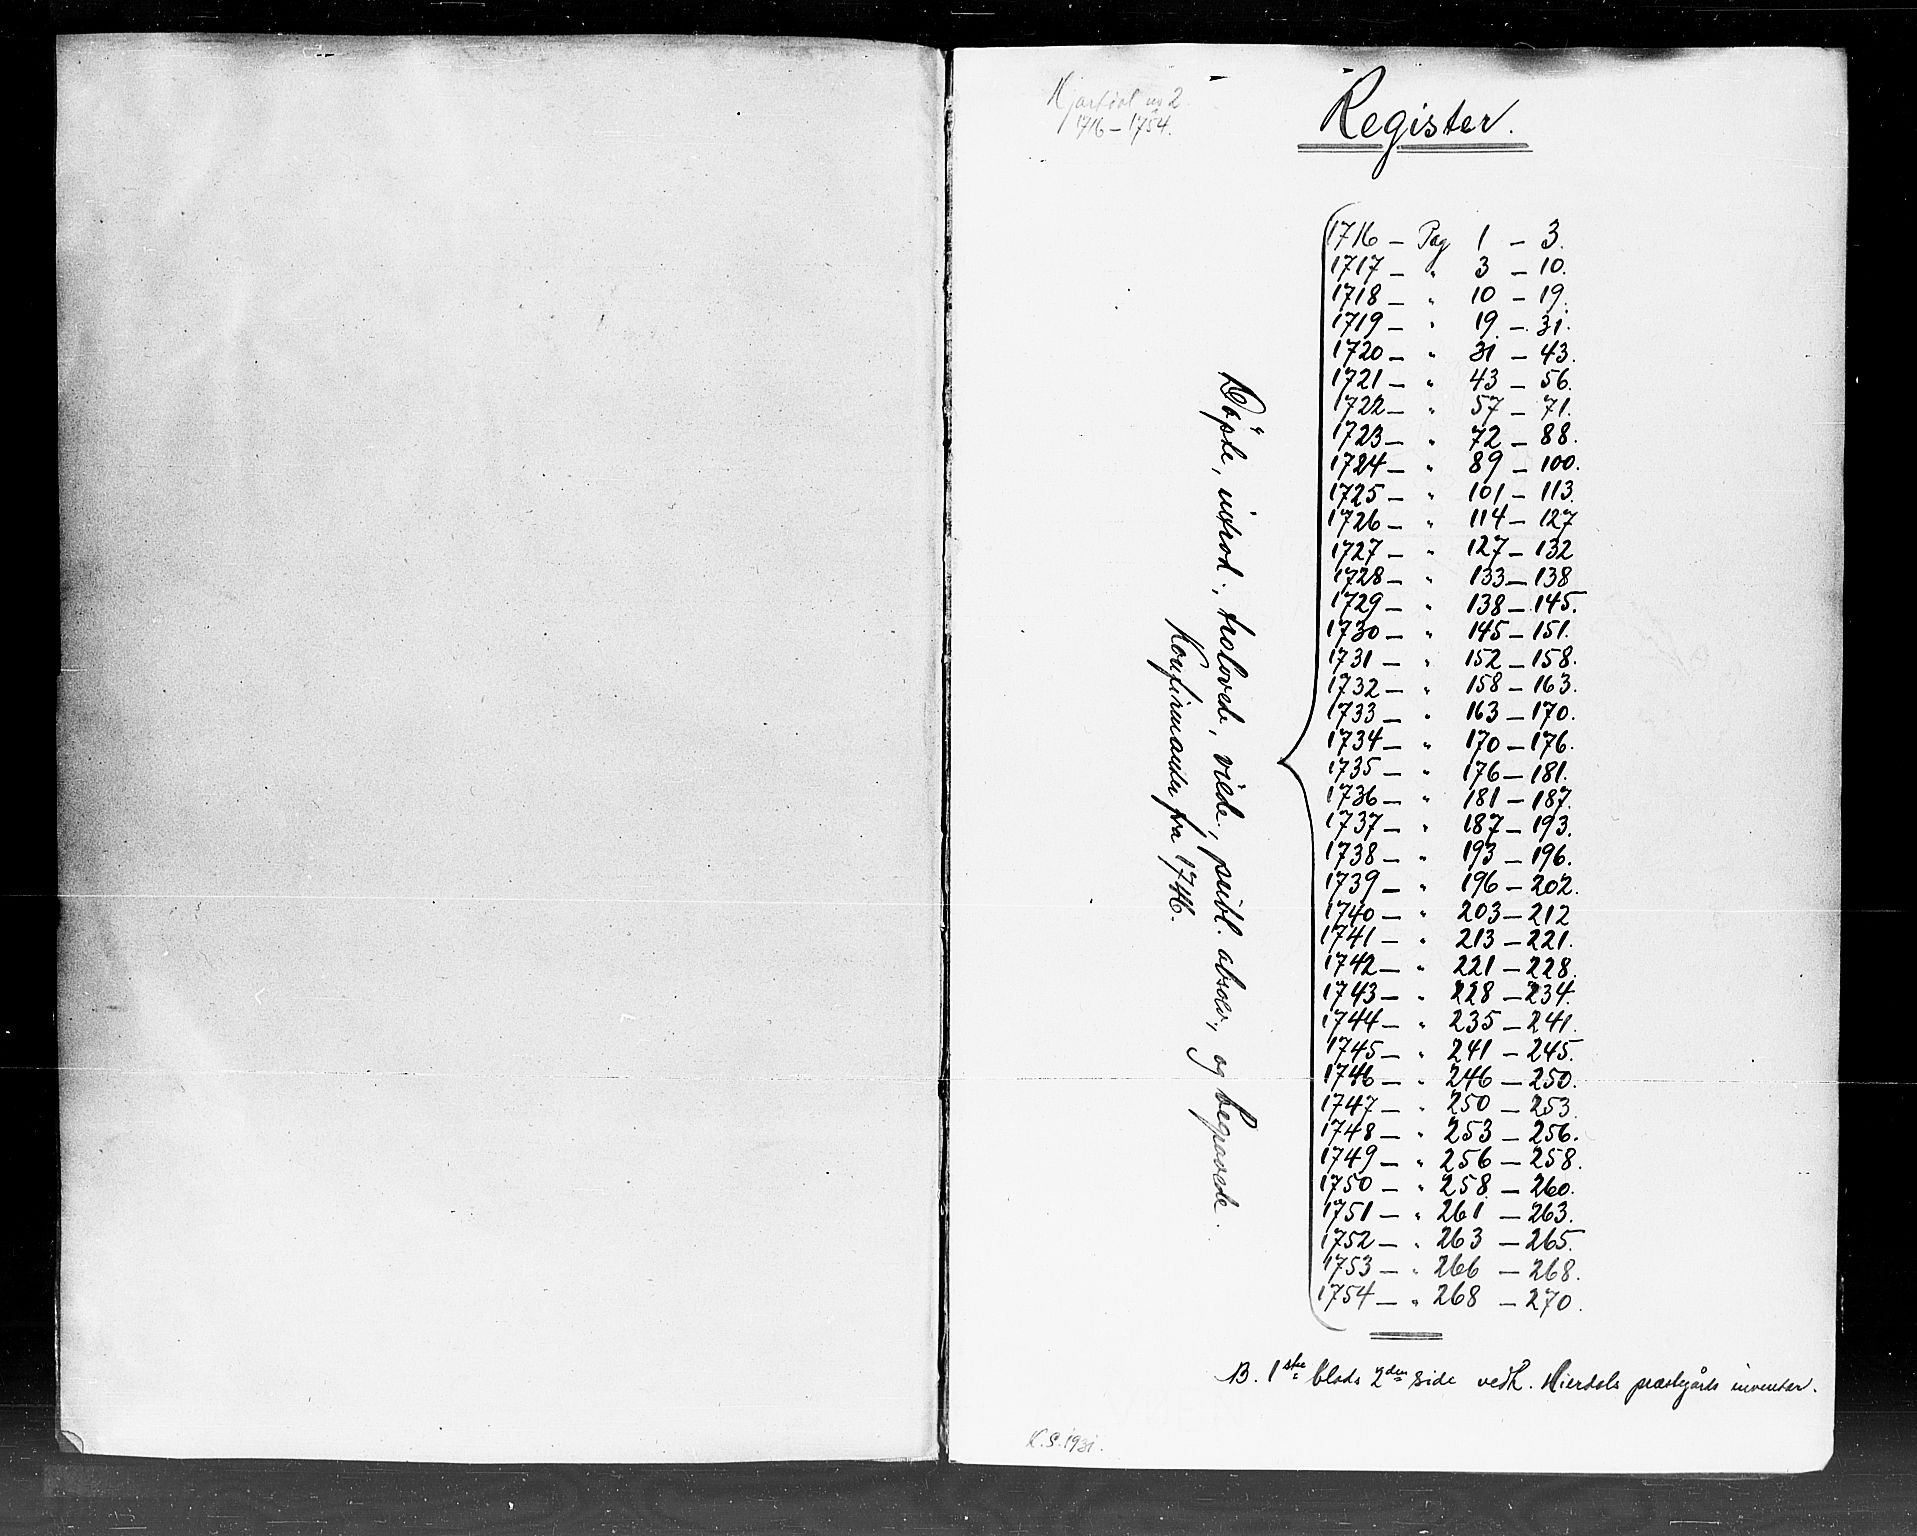 Hjartdal nr 2
1716 – 1754.
Register.
1716 – Pag 1 – 3.
1717 – " 3 – 10.
1718 – " 10 – 19.
1719 – " 19 – 31.
1720 – " 31 – 43.
1721 – " 43 – 56.
1722 – " 57 – 71.
1723 – " 72 – 88.
1724 – " 89 – 100.
1725 – " 101 – 113.
1726 – " 114 – 127
1727 – " 127 – 132
1728 – " 133 – 138
1729 – " 138 – 145.
1730 – " 145 – 151.
1731 – " 152 – 158.
1732 – " 158 – 163.
1733 – " 163 – 170.
1734 – " 170 – 176.
1735 – " 176 – 181.
1736 – " 181 – 187.
1737 – " 187 – 193.
1738 – " 193 – 196.
1739 – " 196 – 202.
1740 – " 203 – 212
1741 – " 213 – 221.
1742 – " 221 – 228.
1743 – " 228 – 234.
1744 – " 235 – 241.
1745 – " 241 – 245.
1746 – " 246 – 250.
1747 – " 250 – 253.
1748 – " 253 – 256.
1749 – " 256 – 258.
1750 – " 258 – 260.
1751 – " 261 – 263.
1752 – " 263 – 265.
1753 – " 266 – 268.
1754 – " 268 – 270.
Döpte, introd., trolovede, viede, publ. absolv., og begravede.
Konfirmanter fra 1746.
B. 1ste blads 2den side vedk. Hierdals præstegårds inventar.
K.S. 1931.